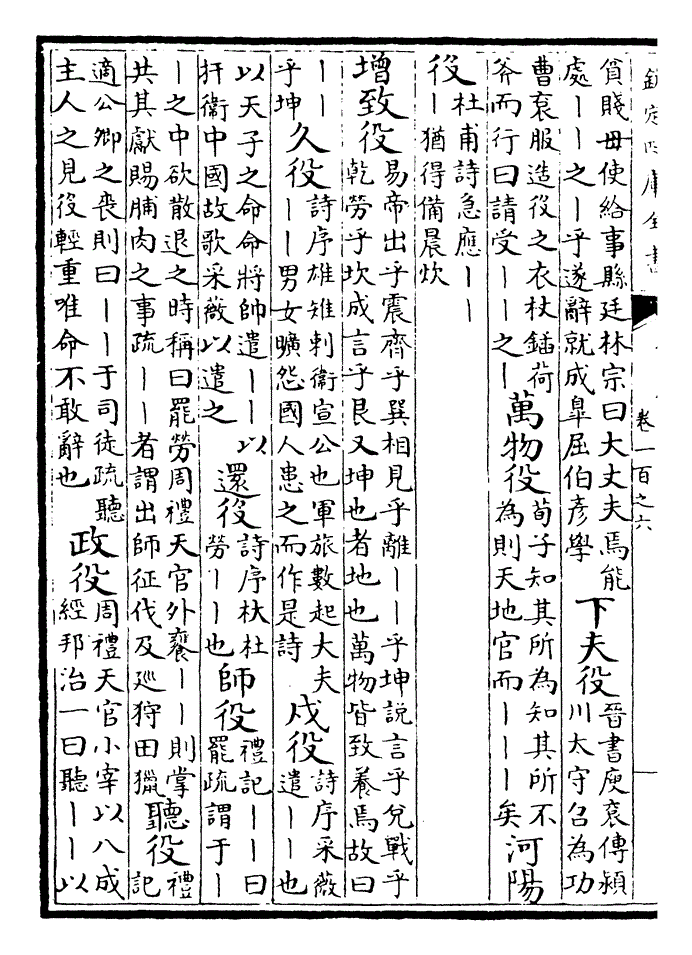 欽定四庫全書
卷一百之六
貧賤母使給事縣廷林宗曰大丈夫焉能
處丨丨之丨乎遂辭就成臯屈伯彥學
下夫役
晉書庾袞傳潁
川太守召為功
曹袞服造役之衣杖鍤荷
斧而行曰請受丨丨之丨
萬物役
荀子知其所為知其所不
為則天地官而丨丨丨矣
河陽
役
杜甫詩急應丨丨
丨猶得備晨炊
增致役
易帝出乎震齊乎巽相見乎離丨丨乎坤說言乎兌戰乎
乾勞乎坎成言乎艮又坤也者地也萬物皆致養焉故曰
丨丨
乎坤
久役
詩序雄雉刺衛宣公也軍旅數起大夫
丨丨男女曠怨國人患之而作是詩
戍役
詩序采薇
遣丨丨也
以天子之命命將帥遣丨丨以
扞衛中國故歌采薇以遣之
還役
詩序杕杜
勞丨丨也
師役
禮記丨丨曰
罷疏謂于丨
丨之中欲散退之時稱曰罷勞周禮天官外饔丨丨則掌
共其獻賜脯肉之事疏丨丨者謂出師征伐及廵狩田獵
聽役
禮
記
適公卿之喪則曰丨丨于司徒疏聽
主人之見役輕重唯命不敢辭也
政役
周禮天官小宰以八成
經邦治一曰聽丨丨以